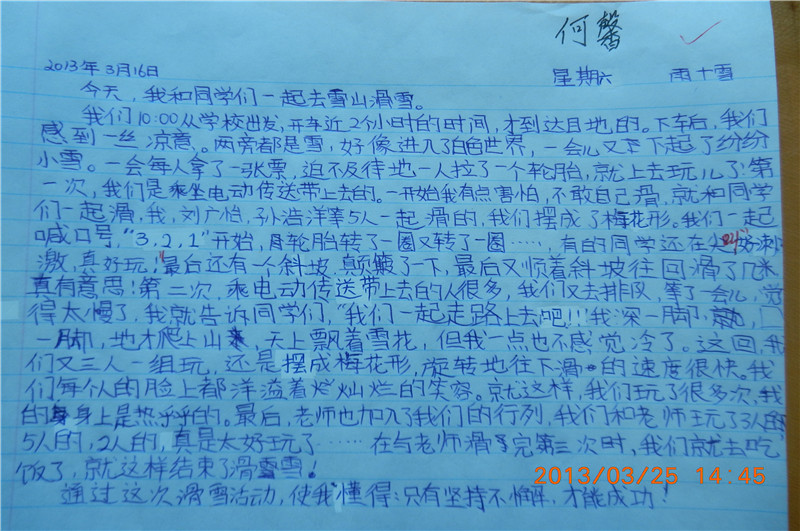 何馨
2013年3月16日 星期六 雨十雪
今天,我和同学们一起去雪山滑雪。
我们10:00从学校出发,开车近2个小时的时间,才到达目地的。下车后,我们
感到一丝凉意。两旁都是雪,好像进入了白色世界,一会儿又下下起了纷纷
小雪。一会每人拿了一张票,迫不及待地一人拉了一个轮胎,就上去玩儿了!第
一次,我们是乘坐电动传送带上去的。一开始我有点害怕,不敢自己滑,就和同学
们一起滑,我,刘广怡,孙浩洋等5人一起滑的,我们摆成了梅花形。我们一起
喊口号"3,2,1"开始,轮胎转了一圈又转了一圈……,有的同学还在
激,真好玩,"最后还有一个斜坡,真颠了一下,最后又顺着斜坡往回滑了几米
真有意思!第二次,乘电动传送带上去的人很多,我们又去排队,等了一会儿,觉
得太慢了,我就告诉同学们,"我们一起走路上去吧!!!我深一脚,
一脚,地才爬上山来,天上飘着雪花,但我一点也不感觉冷了。这回,我
们又三人一组玩,还是摆成梅花形,旋转地往下滑的速度很快。我
们每个人的脸上都洋溢着灿烂的笑容。就这样,我们玩了很多次,我
的身上是热乎乎的。最后,老师也加入了我们的行列,我们和老师玩了3人的
5人的,2人的,真是太好玩了……在与老师滑完第三次时,我们就去吃
饭了,就这样结束了滑雪!
通过这次滑雪活动,使我懂得:只有坚持不懈,才能成功!
2013/03/25 14:45